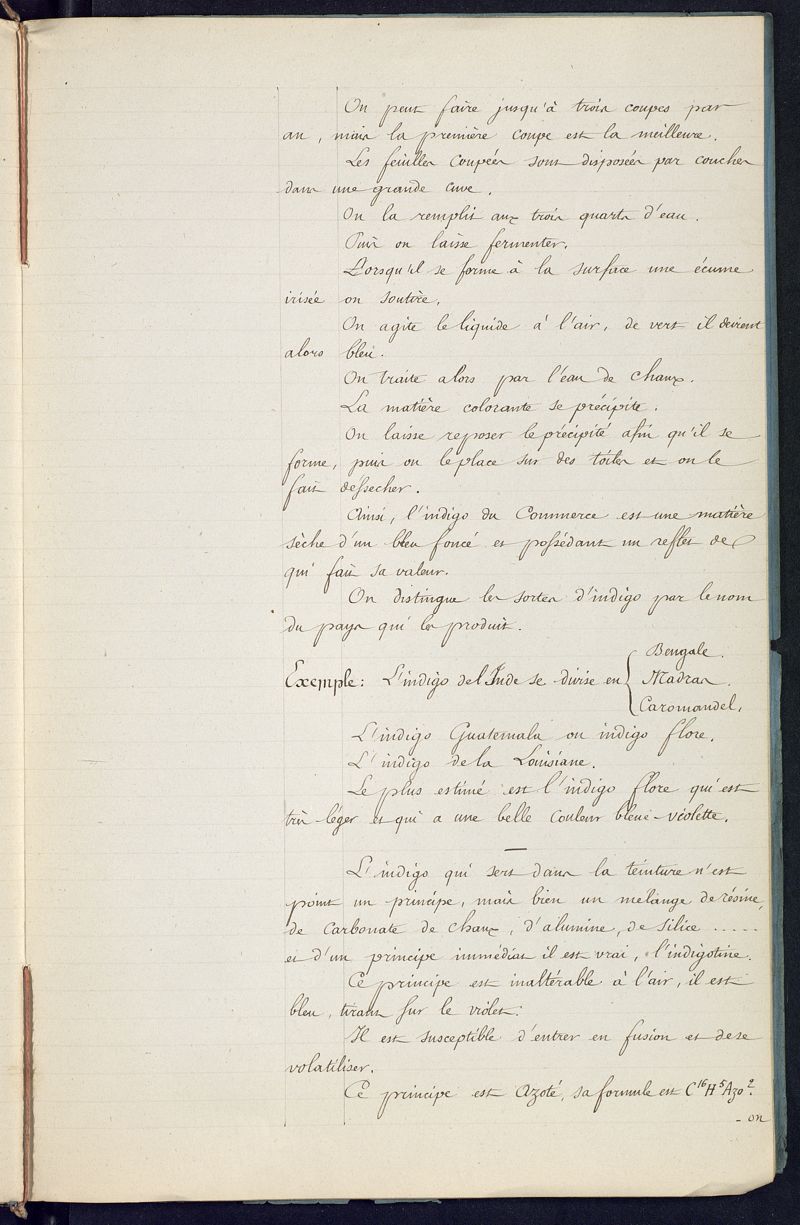 On peut faire jusqu'à trois coupes par
an, mais la première coupe est la meilleure.
Les feuilles coupées sont disposées par couches
dans une grande cuve.
On la remplit aux trois quarts d'eau.
Puis on laisse fermenter.
Lorsqu'il se forme à la surface une écume
irisée on soutire.
On agite le liquide à l'air, de vert il devient
alors bleu.
On traite alors par l'eau de chaux.
La matière colorante se précipite.
On laisse reposer le précipité afin qu'il se
forme, puis on le place sur des toiles et on le
fait dessecher.
Ainsi, l'indigo du Commerce est une matière
sèche d'un bleu foncé et possédant un reflet de
qui fait sa valeur.
On distingue les sortes d'indigo par le nom
du pays qui les produit.
Bengale.
Exemple: L'indigo de l'Inde se divise en { Madras.
Caromandel.
L'indigo Guatemala ou indigo flore.
L'indigo de la Louisiane.
Le plus estimé est l'indigo flore qui est
très léger et qui a une belle couleur bleue-violette.
—
L'indigo qui sert dans la teinture n'est
point un principe, mais bien un mélange de résine,
de carbonate de chaux, d'alumine, de silice .....
et d'un principe immédiat il est vrai, l'indigotine.
Ce principe est inaltérable à l'air, il est
bleu, tirant sur le violet.
Il est susceptible d'entrer en fusion et de se
volatiliser.
Ce principe est azoté, sa formule est C¹⁶H⁵AzO².
- on